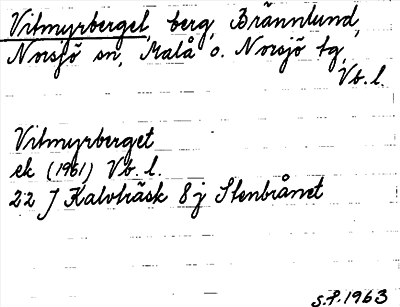 Vitmyrberget, berg, Brännlund,
Norsjö sn, Malå o. Norsjö tg,
Vb. l.
Vitmyrberget
ek (1961) Vb. l.
22 J Kalvträsk 8 j Stenbrånet
S.P. 1963